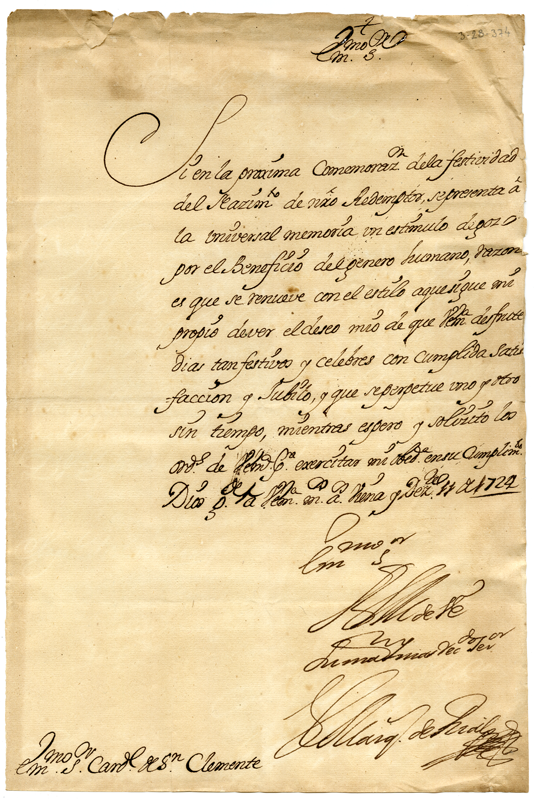 3-28-374
Emo. Sr.
Si en la proxima Comemorazn. de la festividad
del Nazimto. de nr̃o Redemptor, se presenta à
la universal memoria un estimulo de gozo
por el Beneficio del genero humano, razon
es que se renueve con el estilo aque sigue mi
propio dever el deseo mio de que Vema. desfrute
dias tan festivos y celebres con cumplida satis
faccion y Jubilo, y que se perpetue uno y otro
sin tiempo, mientras espero y solicito los
ords. de Vema. Ca. exercitar mi obeda. en su Cumplimto.
Dios gde. la Vema. ms. as. Viena y Dezre. 11 de 1724
Emo. Sor.
S.
BLM de Vª Eª
su mas
Servor
El Marqs. de Rialp
Emo. Sr. Cardl. de Sn. Clemente